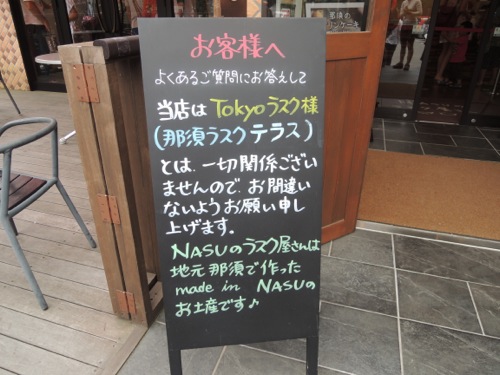 お客様へ
よくあるご質問にお答えして
当店は Tokyoラスク様
(那須ラスクテラス)
とは、一切関係ござい
ませんので、お間違い
ないようお願い申し
上げます。
NASUのラスク屋さんは
地元那須で作った
made in NASUの
お土産です♪
那須の